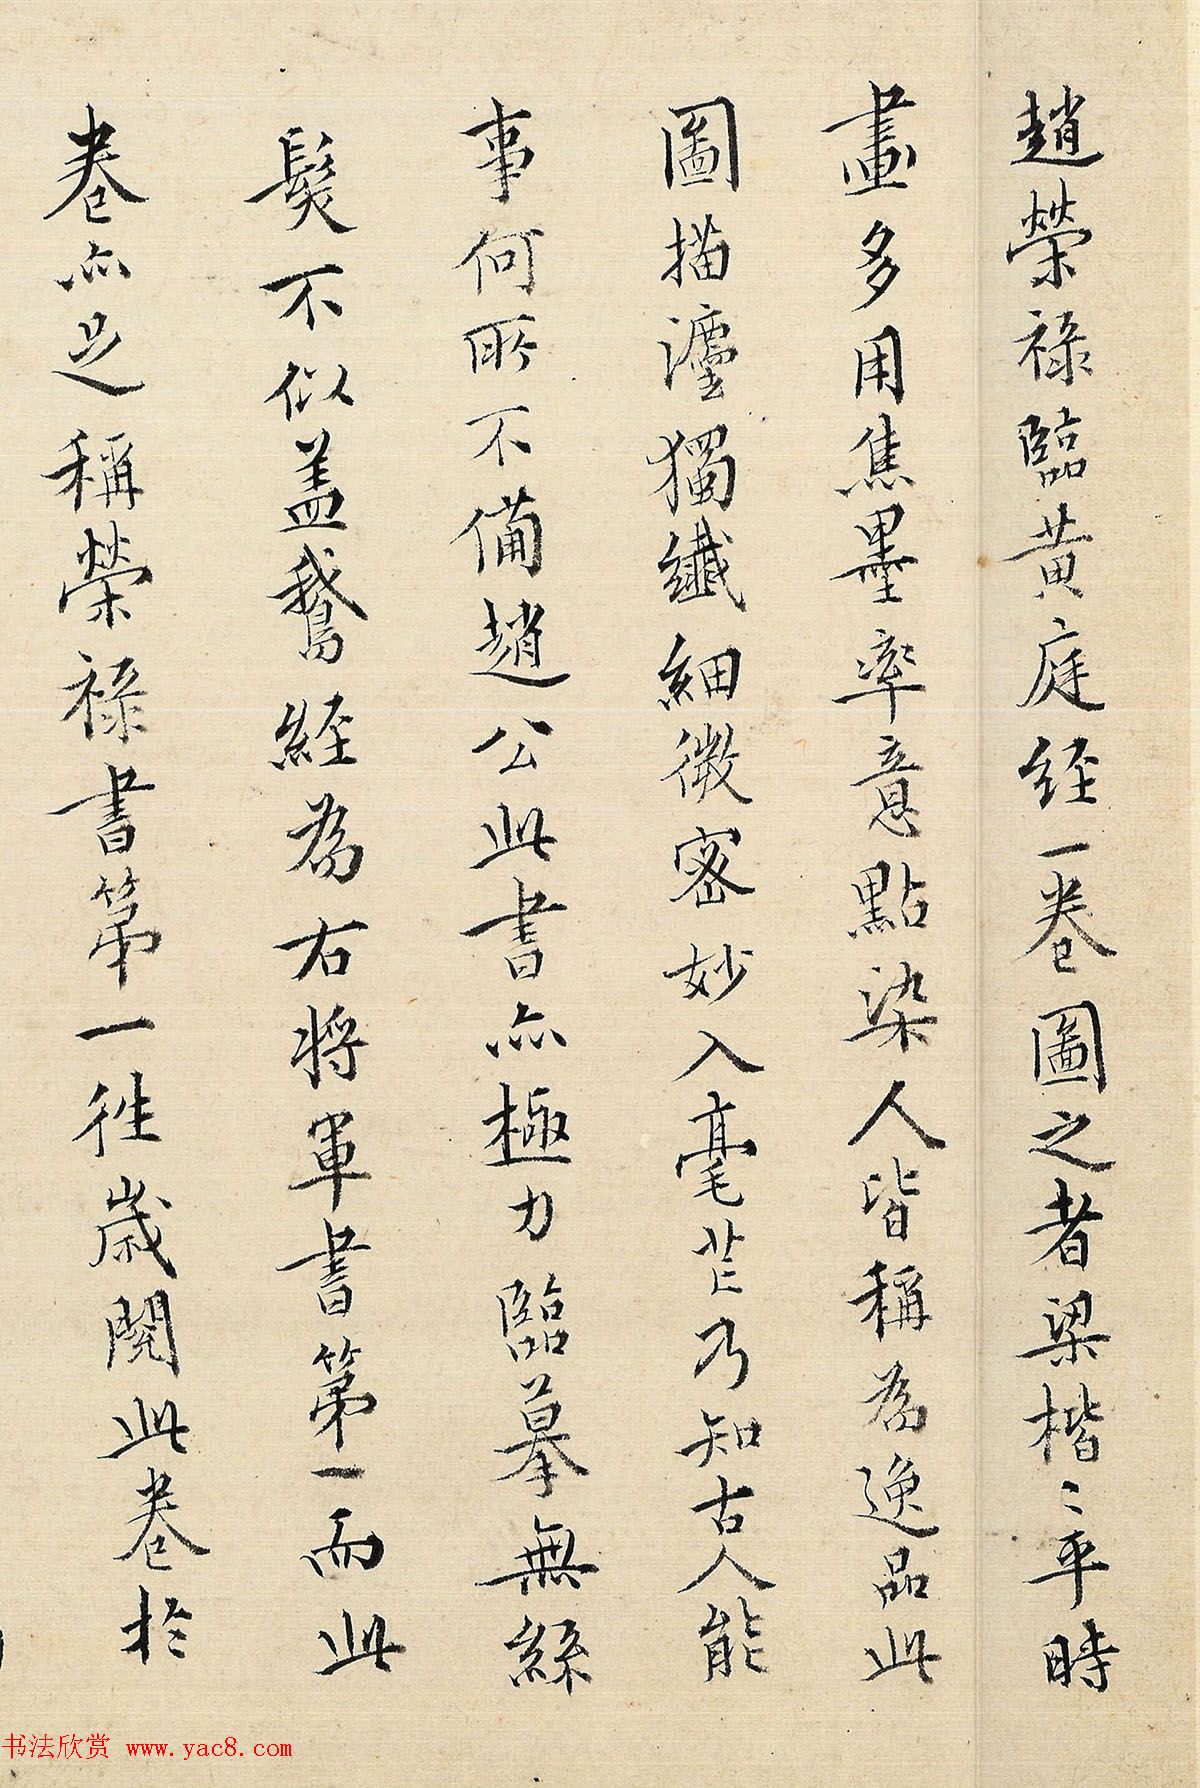 趙榮祿臨黃庭經一卷圖之者梁楷〻平時
畫多用焦墨率意點染人皆稱為逸品此
圖描瀍獨纖細微密妙入毫芒乃知古人能
事何所不備趙公此書亦極力臨摹無絲
髮不似蓋鵝經為右將軍書第一而此
卷亦足稱榮祿書第一往歲閱此卷於
书法欣赏 www.yac8.com